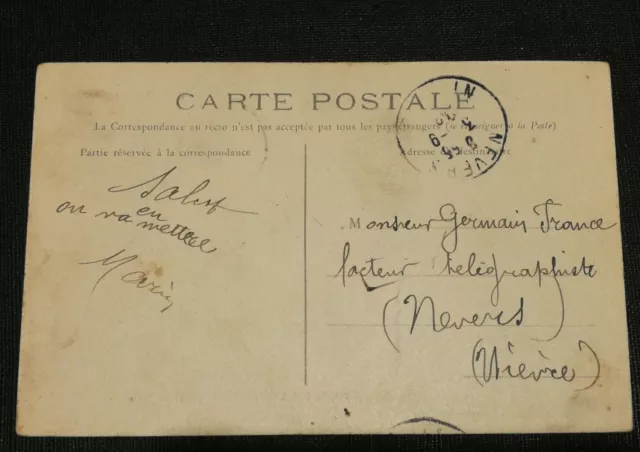 CARTE POSTALE
La Correspondance au recto n'est pas acceptée par tous les pays étrangers (se renseigner à la Poste)
Partie réservée à la correspondance
Adresse du destinataire
NEVERS
Salut
on va en mettre
Monsieur Germain France
facteur télégraphiste
(Nevers)
(Nièvre)